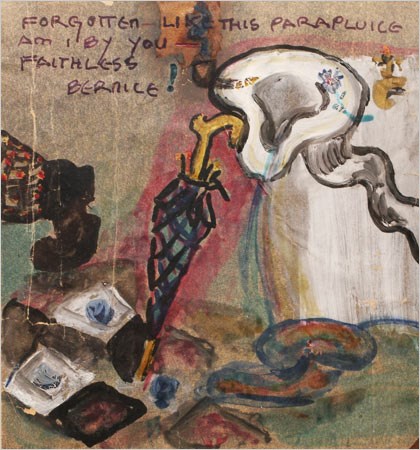 FORGOTTEN — LIKE THIS PARAPLUICE
AM I BY YOU —
FAITHLESS
BERNICE !